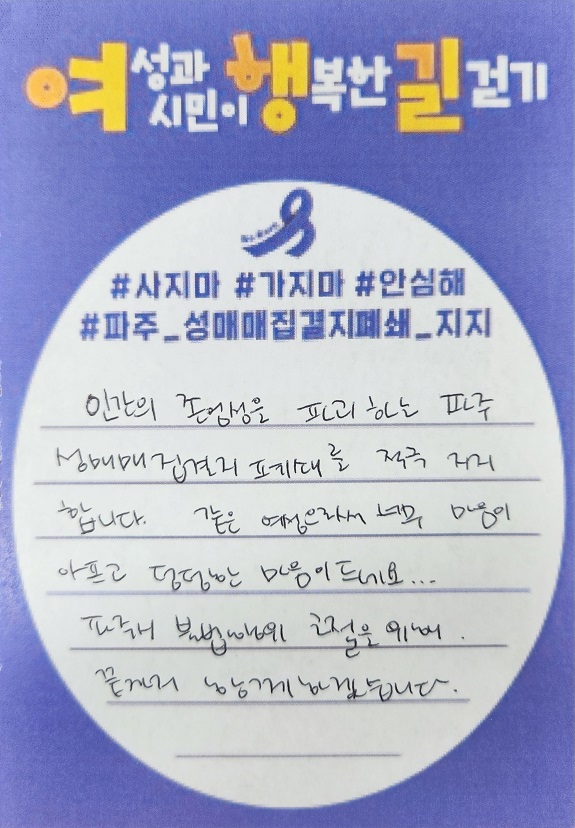 여성과 시민이 행복한 길 걷기
#사지마 #가지마 #안심해
#파주_성매매집결지폐쇄_지지
인간의 존엄성을 파괴하는 파주
성매매집결지 폐쇄를 적극 지지
합니다. 같은 여성으로서 너무 마음이
아프고 답답한 마음이 드네요...
파주시 불법행위 근절을 위해.
끝까지 함께하겠습니다.